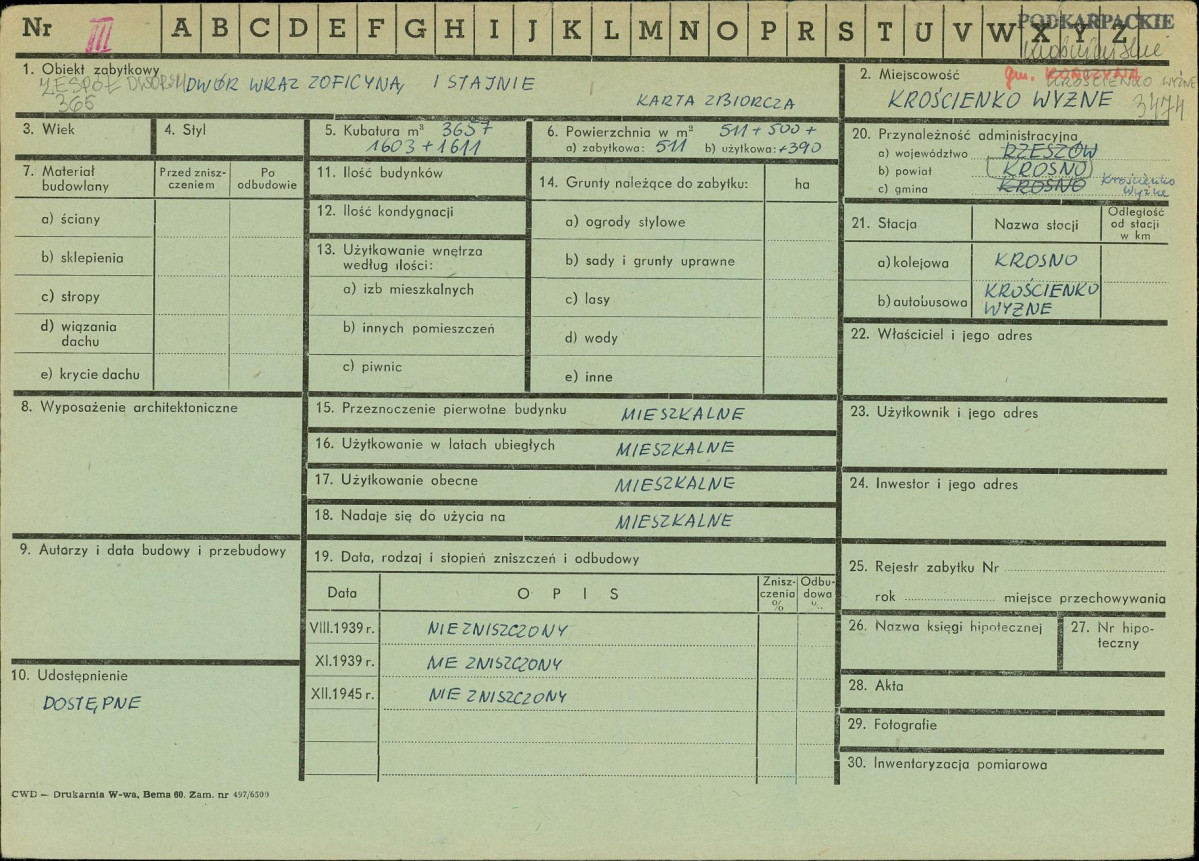 Nr III A B C D E F G H I J K L M N O P R S T U V W X Y Z
PODKARPACKIE
1. Obiekt zabytkowy
ZESPÓŁ DWORSKI DWÓR WRAZ Z OFICYNĄ, I STAJNIE
365
KARTA ZBIORCZA
2. Miejscowość gm. KORCZYNA
KROŚCIENKO WYŻNE
KROŚCIENKO WYŻNE 3474
3. Wiek
4. Styl
5. Kubatura m³ 3657
1603 + 1611
6. Powierzchnia w m² 511 + 500 +
a) zabytkowa: 511 b) użytkowa: +390
7. Materiał budowlany
Przed zniszczeniem
Po odbudowie
a) ściany
b) sklepienia
c) stropy
d) wiązania dachu
e) krycie dachu
11. Ilość budynków
12. Ilość kondygnacji
13. Użytkowanie wnętrza
według ilości:
a) izb mieszkalnych
b) innych pomieszczeń
c) piwnic
14. Grunty należące do zabytku: ha
a) ogrody stylowe
b) sady i grunty uprawne
c) lasy
d) wody
e) inne
20. Przynależność administracyjna
a) województwo RZESZÓW
b) powiat KROSNO
c) gmina KROSNO Krościenko
Wyżne
21. Stacja
Nazwa stacji
Odległość
od stacji
w km
a) kolejowa KROSNO
b) autobusowa KROŚCIENKO
WYŻNE
22. Właściciel i jego adres
8. Wyposażenie architektoniczne
15. Przeznaczenie pierwotne budynku MIESZKALNE
16. Użytkowanie w latach ubiegłych MIESZKALNE
17. Użytkowanie obecne MIESZKALNE
18. Nadaje się do użycia na MIESZKALNE
23. Użytkownik i jego adres
24. Inwestor i jego adres
9. Autorzy i data budowy i przebudowy
19. Data, rodzaj i stopień zniszczeń i odbudowy
Data
OPIS
Znisz-
czenia
%
Odbu-
dowa
%
VIII.1939 r. NIEZNISZCZONY
XI.1939 r. NIE ZNISZCZONY
XII.1945 r. NIE ZNISZCZONY
10. Udostępnienie
DOSTĘPNE
25. Rejestr zabytku Nr
rok miejsce przechowywania
26. Nazwa księgi hipotecznej
27. Nr hipo-
teczny
28. Akta
29. Fotografie
30. Inwentaryzacja pomiarowa
CWD — Drukarnia W-wa, Bema 60. Zam. nr 497/6500